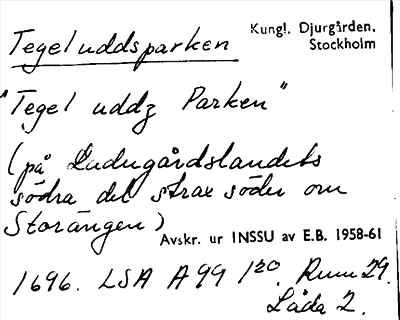 Tegeluddsparken
Kungl. Djurgården.
Stockholm
"Tegel uddz Parken"
(på Ladugårdslandets
södra del strax söder om
Storängen)
Avskr. ur INSSU av E.B. 1958-61
1696. LSA A99 1²⁰. Rum 29.
Låda 2.